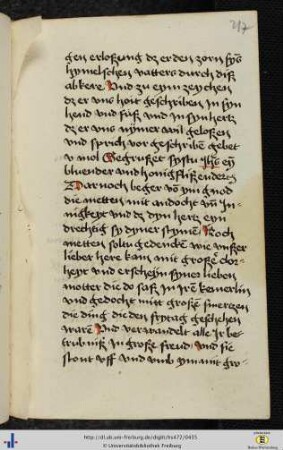 217
gen erloßung dz er den zorn sÿs
hymelschen vatters durch dis
ab kere Vnd zu eym zeychen
dz er vns hott geschriben In syn
hend vnd fuß vnd In syn hertz
dz er vns nÿmer wil geloßen
vnd sprich vor geschriben gebet
v mol Gegrußet systu Jhs ey
bluender vnd honigflißender
Darnoch beger vō ym gnod
die metten mit andocht vn̄ In¬
nigkeyt vnd dz dyn hertz eyn
drechtig sy dyner stymē Noch
metten soltu gedenckē wie vnßer
lieber here kam mit großer clor¬
heyt vnd erscheyn syner lieben
motter die do saß In irē kemerlin
vnd gedocht mitt großē smertzen
die ding die den frytag geschehen
warē Vnd verwandelt alle Ir be¬
trubniß In große freud vnd sie
stont vff vnd vmb ving mit gro¬
http://dl.ub.uni-freiburg.de/diglit/hs472/0435
© Universitätsbibliothek Freiburg